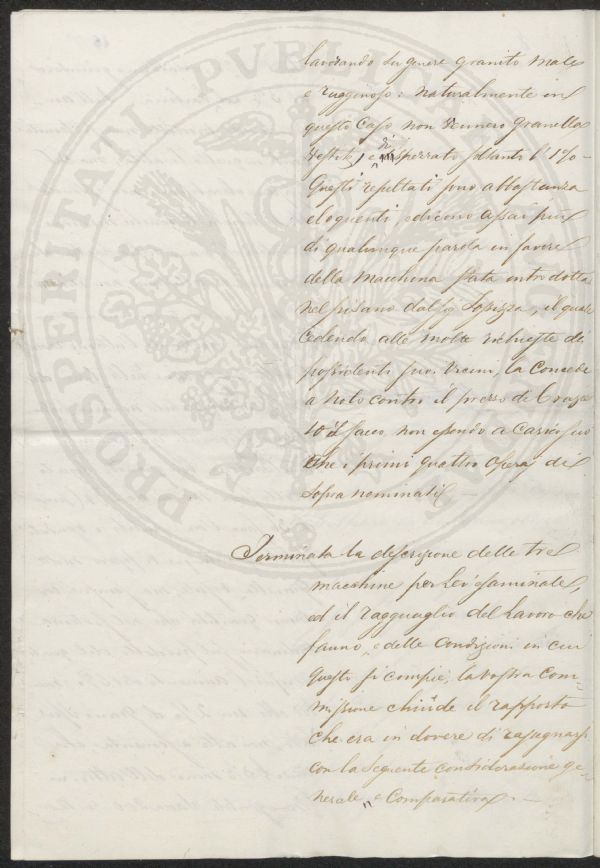 lavorando su genere granito male
e rugginoso: naturalmente in
questo Caso non vennero granella
vestite, e di spezzato soltanto l' 1 %
Questi resultati sono abbastanza
eloquenti, e dicono assai più
di qualunque parola in favore
della Macchina stata introdotta
nel pisano dal Sig. il quale
cedendo alle molte richieste di
possidenti suoi vicini, la concede
a nolo contro il prezzo di Craze
10 Sacco, non essendo a Carico suo
che i primi quattro opera di
sopra nominati. —
Terminata la descrizione delle tre
macchine per Lei esaminate,
ed il ragguaglio del Lavoro che
fanno, e delle Condizioni in cui
questi si compie, la vostra Com-
missione chiude il rapporto
che era in dovere di rassegnarsi
con la seguente considerazione ge-
nerale, e Comparativa. —
PROSPERITATI PVBLICAE